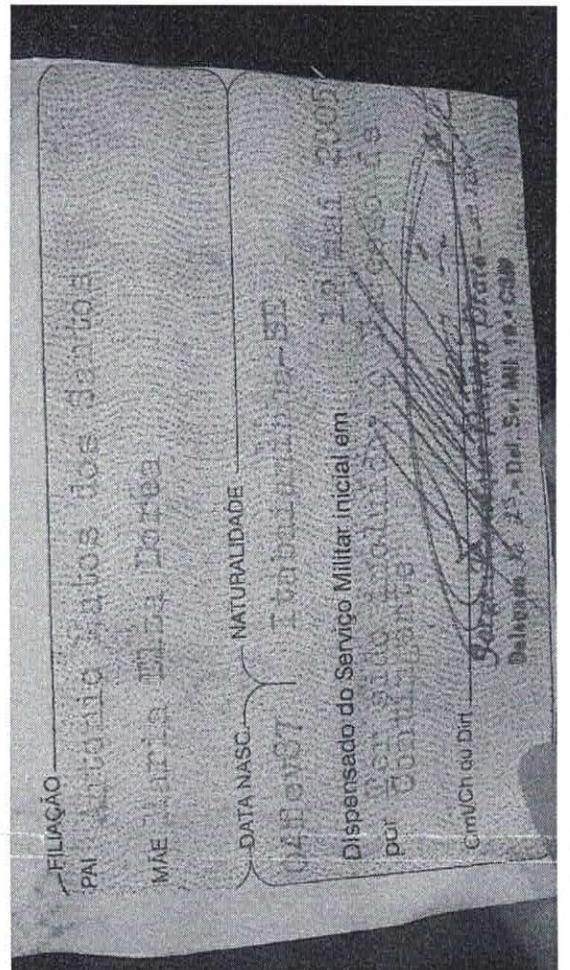 FILIAÇÃO
PAI Antonio Matos dos Santos
MÃE Maria Elza Dorea
DATA NASC. NATURALIDADE
04fev87 Itabaianinha-SE
Dispensado do Serviço Militar Inicial em 12 mai 2005
por Ter sido incluído no Excesso de
Contingente
Cmt/Ch ou Dirt
Delegado Del. Sv. Mil 19.ª CSM